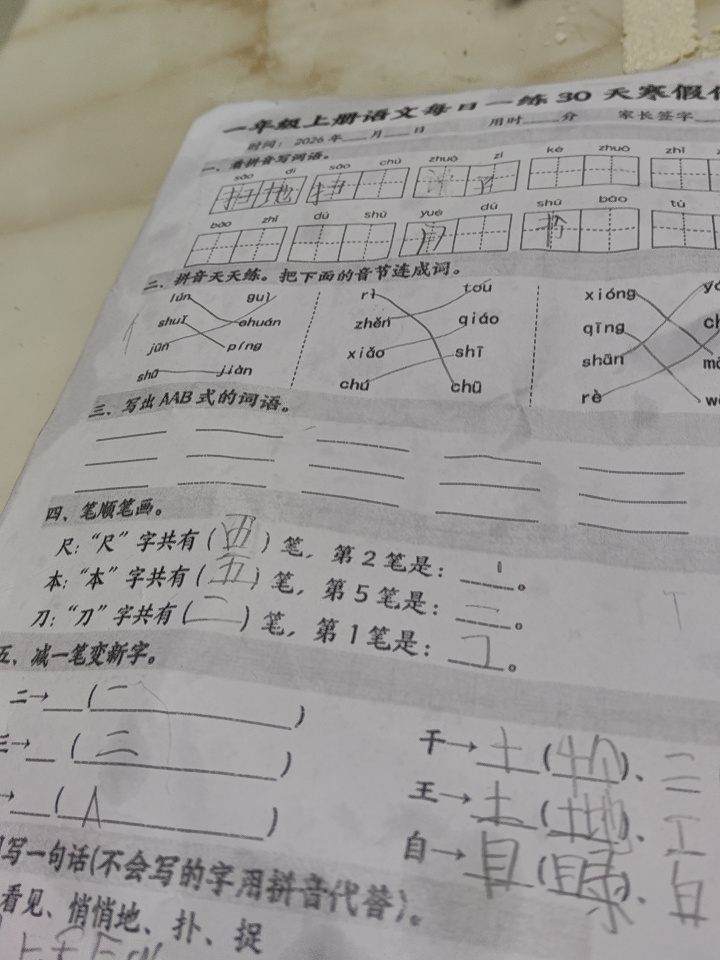 一年级上册语文每日一练30天寒假
时间：2026年 月 日 用时 分 家长签字
一、看拼音写词语。
sǎo dì sǎo chú zhuō zi kè zhuō zhǐ
扫地 扫
bào zhǐ dú shū yuè dú shū bāo tú
书
二、拼音天天练。把下面的音节连成词。
guì rì tóu xióng
shuǐ chuán zhěn qiáo qīng
jūn píng xiǎo shī shān
shū jiàn chú chū rè
三、写出AAB式的词语。
四、笔顺笔画。
尺：“尺”字共有（四）笔，第2笔是：。
本：“本”字共有（五）笔，第5笔是：一。
刀：“刀”字共有（二）笔，第1笔是：。
五、减一笔变新字。
二→ （一 ）
三→ （二 ） 千→十（ ）、二
→ （人 ） 王→土（土地）、工
自→目（ ）、白
写一句话(不会写的字用拼音代替)。
看见、悄悄地、扑、捉